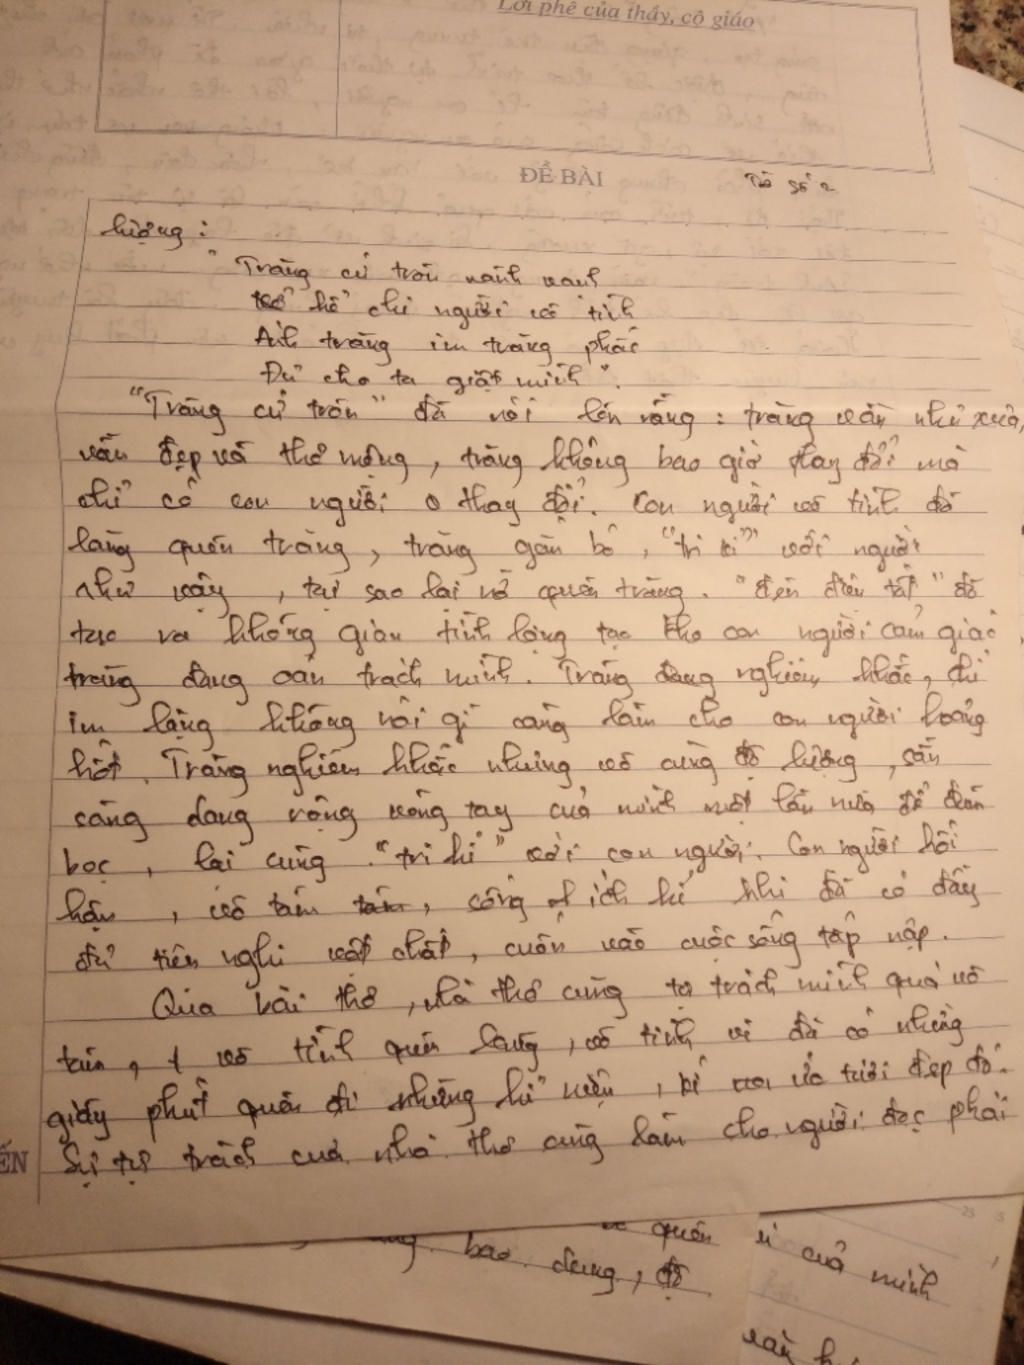 Lời phê của thầy, cô giáo
ĐỀ BÀI
Tờ số 2
lượng :
" Trăng cứ tròn vành vạnh
kể chi người vô tình
Ánh trăng im trăng phắc
Đủ cho ta giật mình ".
"Trăng cứ tròn" đã nói lên rằng : trăng vẫn như xưa,
vẫn đẹp và thơ mộng, trăng không bao giờ thay đổi mà
chỉ có con người thay đổi. Con người vô tình đã
lãng quên trăng, trăng gắn bó, "tri kỉ" với người
như vậy, tại sao lại nỡ quên trăng. "đèn điện tắt" đã
tạo ra không gian tĩnh lặng tạo cho con người cảm giác
trăng đang oán trách mình. Trăng đang nghiêm khắc, chỉ
im lặng không nói gì càng làm cho con người hoảng
hốt. Trăng nghiêm khắc nhưng vô cùng độ lượng, sẵn
sàng dang rộng vòng tay của mình một lần nữa để đùm
bọc, lại cùng "tri kỉ" với con người. Con người hối
hận, vô tâm, sống ích kỉ khi đã có đầy
đủ tiện nghi vật chất, cuốn vào cuộc sống tấp nập.
Qua bài thơ, nhà thơ cũng tự trách mình quá vô
tâm, vô tình quên lãng, vô tình vì đã có những
giây phút quên đi những kỉ niệm, kí ức tươi đẹp đó.
Sự tự trách của nhà thơ cũng làm cho người đọc phải
ẾN
quên
bao dung, độ
của mình